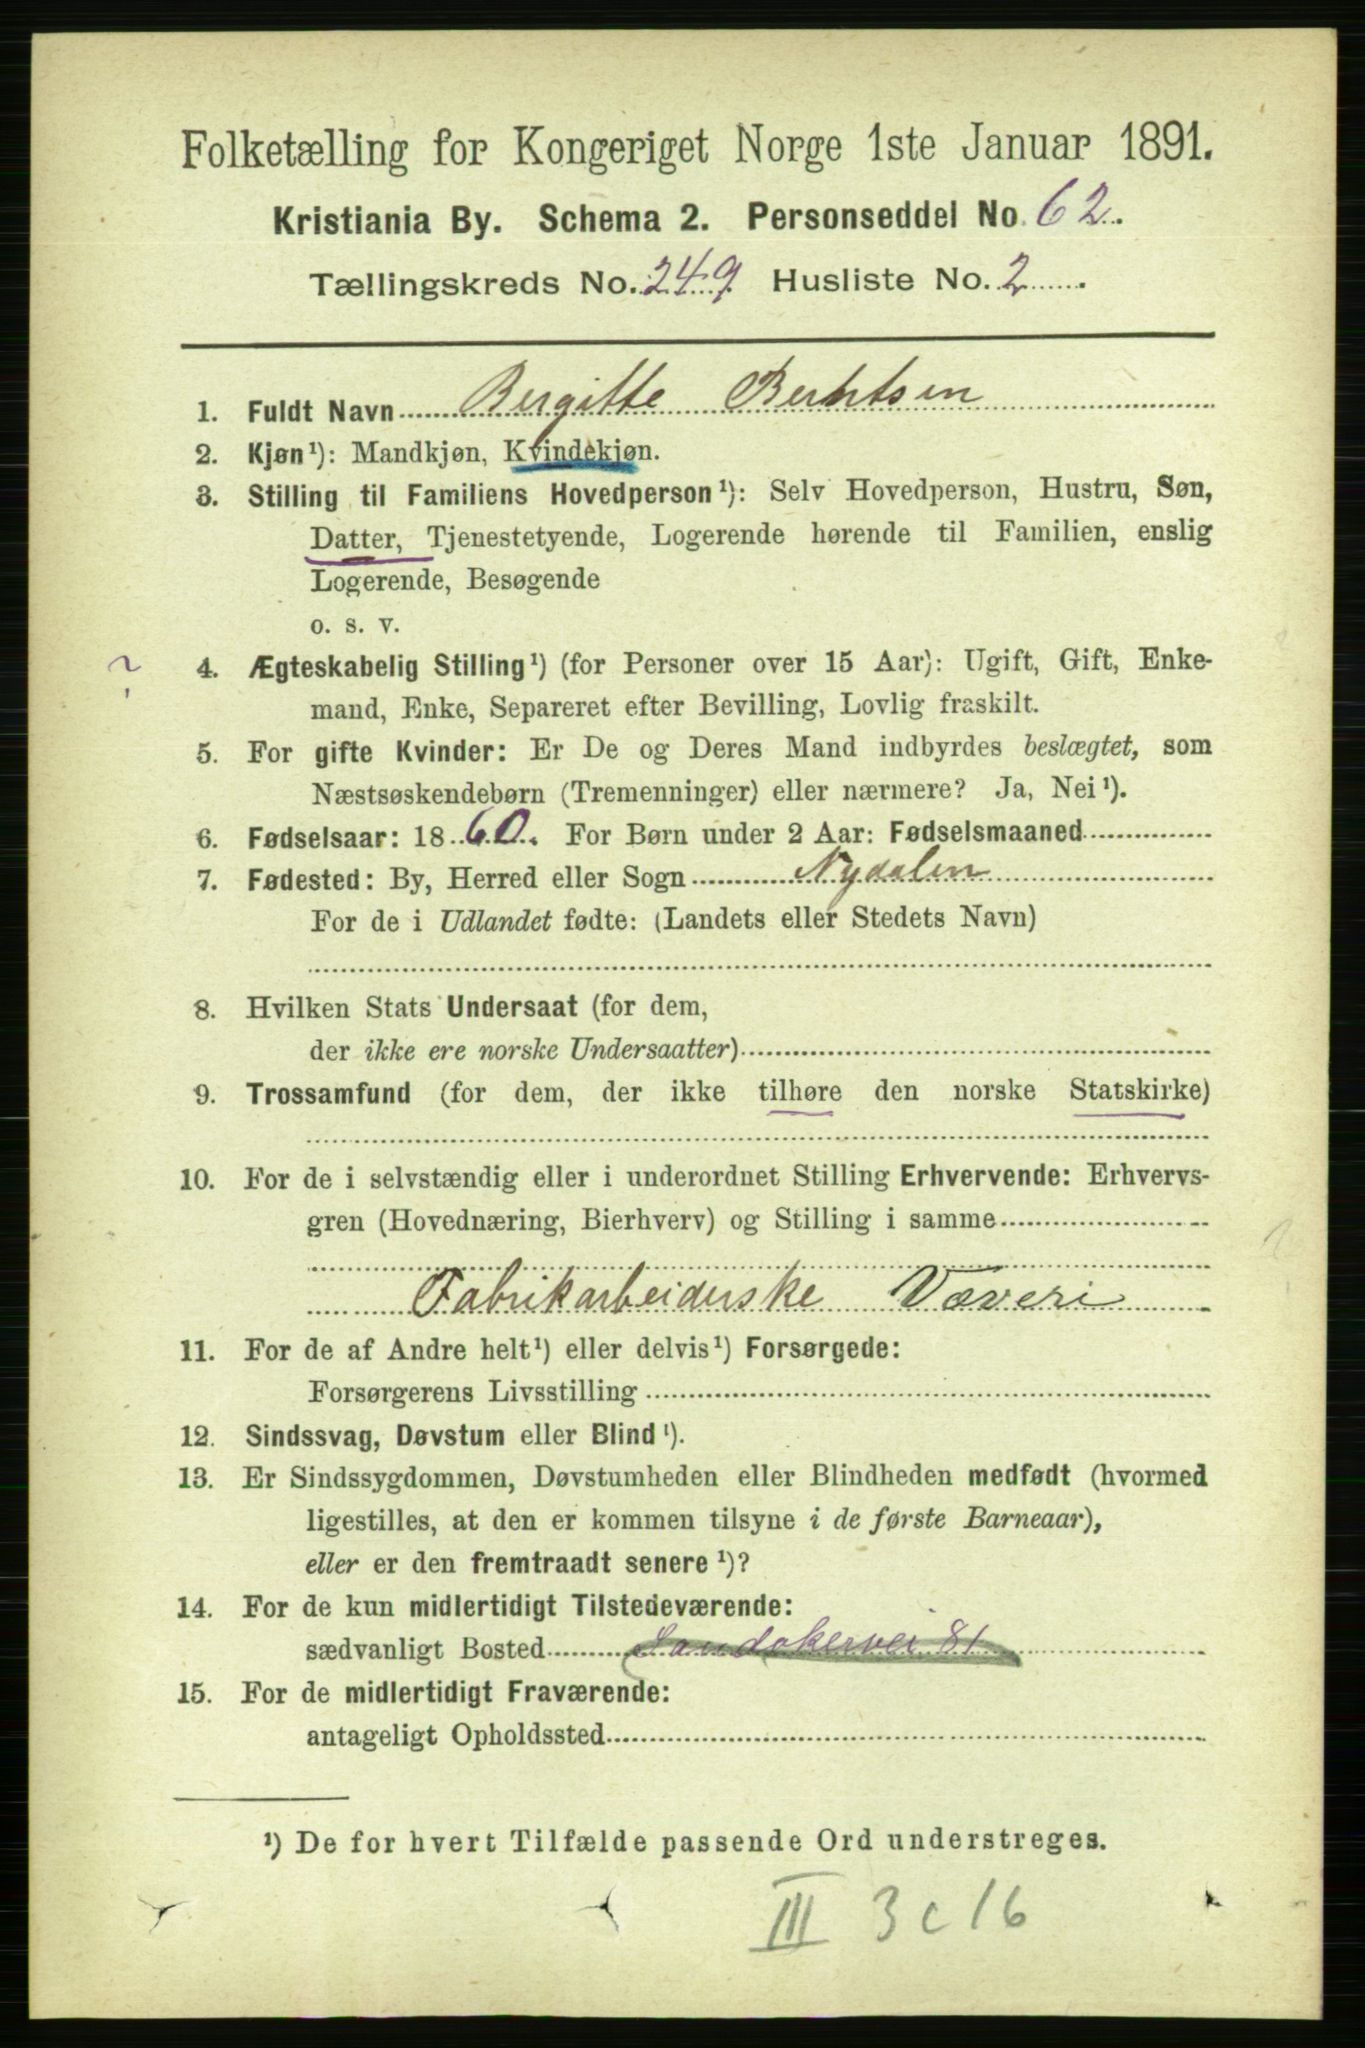 Folketælling for Kongeriget Norge 1ste Januar 1891.
Kristiania By. Schema 2. Personseddel No. 62.
Tællingskreds No. 249 Husliste No. 2
1. Fuldt Navn Birgitte Berntsen
2. Kjøn¹): Mandkjøn, Kvindekjøn.
3. Stilling til Familiens Hovedperson¹): Selv Hovedperson, Hustru, Søn,
Datter, Tjenestetyende, Logerende hørende til Familien, enslig
Logerende, Besøgende
o. s. v.
? 4. Ægteskabelig Stilling¹) (for Personer over 15 Aar): Ugift, Gift, Enke-
mand, Enke, Separeret efter Bevilling, Lovlig fraskilt.
5. For gifte Kvinder: Er De og Deres Mand indbyrdes beslægtet, som
Næstsøskendebørn (Tremenninger) eller nærmere? Ja, Nei¹).
6. Fødselsaar: 1860. For Børn under 2 Aar: Fødselsmaaned
7. Fødested: By, Herred eller Sogn Nydalen
For de i Udlandet fødte: (Landets eller Stedets Navn)
8. Hvilken Stats Undersaat (for dem,
der ikke ere norske Undersaatter)
9. Trossamfund (for dem, der ikke tilhøre den norske Statskirke)
10. For de i selvstændig eller i underordnet Stilling Erhvervende: Erhvervs-
gren (Hovednæring, Bierhverv) og Stilling i samme
Fabrikarbeiderske Væveri
11. For de af Andre helt¹) eller delvis¹) Forsørgede:
Forsørgerens Livsstilling
12. Sindssvag, Døvstum eller Blind¹).
13. Er Sindssygdommen, Døvstumheden eller Blindheden medfødt (hvormed
ligestilles, at den er kommen tilsyne i de første Barneaar),
eller er den fremtraadt senere¹)?
14. For de kun midlertidigt Tilstedeværende:
sædvanligt Bosted Sandakervei 81
15. For de midlertidigt Fraværende:
antageligt Opholdssted
¹) De for hvert Tilfælde passende Ord understreges.
III 3 c 16